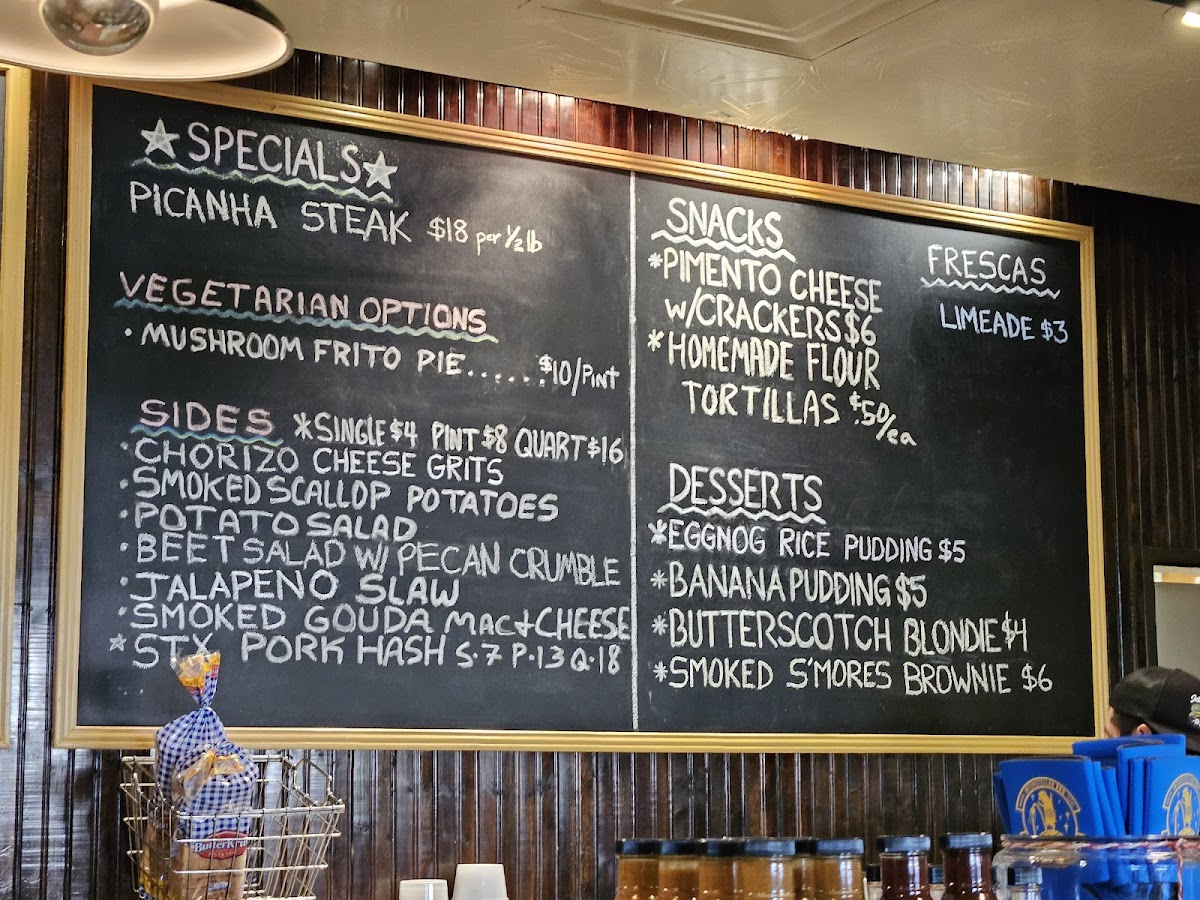 ★SPECIALS★
PICANHA STEAK $18 per 1/2 lb
VEGETARIAN OPTIONS
· MUSHROOM FRITO PIE......$10/PINT
SIDES *SINGLE $4 PINT $8 QUART $16
· CHORIZO CHEESE GRITS
· SMOKED SCALLOP POTATOES
· POTATO SALAD
· BEET SALAD W/ PECAN CRUMBLE
· JALAPENO SLAW
· SMOKED GOUDA MAC+CHEESE
* STX PORK HASH S·7 P·13 Q·18
SNACKS
*PIMENTO CHEESE
W/CRACKERS $6
*HOMEMADE FLOUR
TORTILLAS $.50/ea
FRESCAS
LIMEADE $3
DESSERTS
*EGGNOG RICE PUDDING $5
*BANANA PUDDING $5
*BUTTERSCOTCH BLONDIE $4
*SMOKED S'MORES BROWNIE $6
ButterKrust